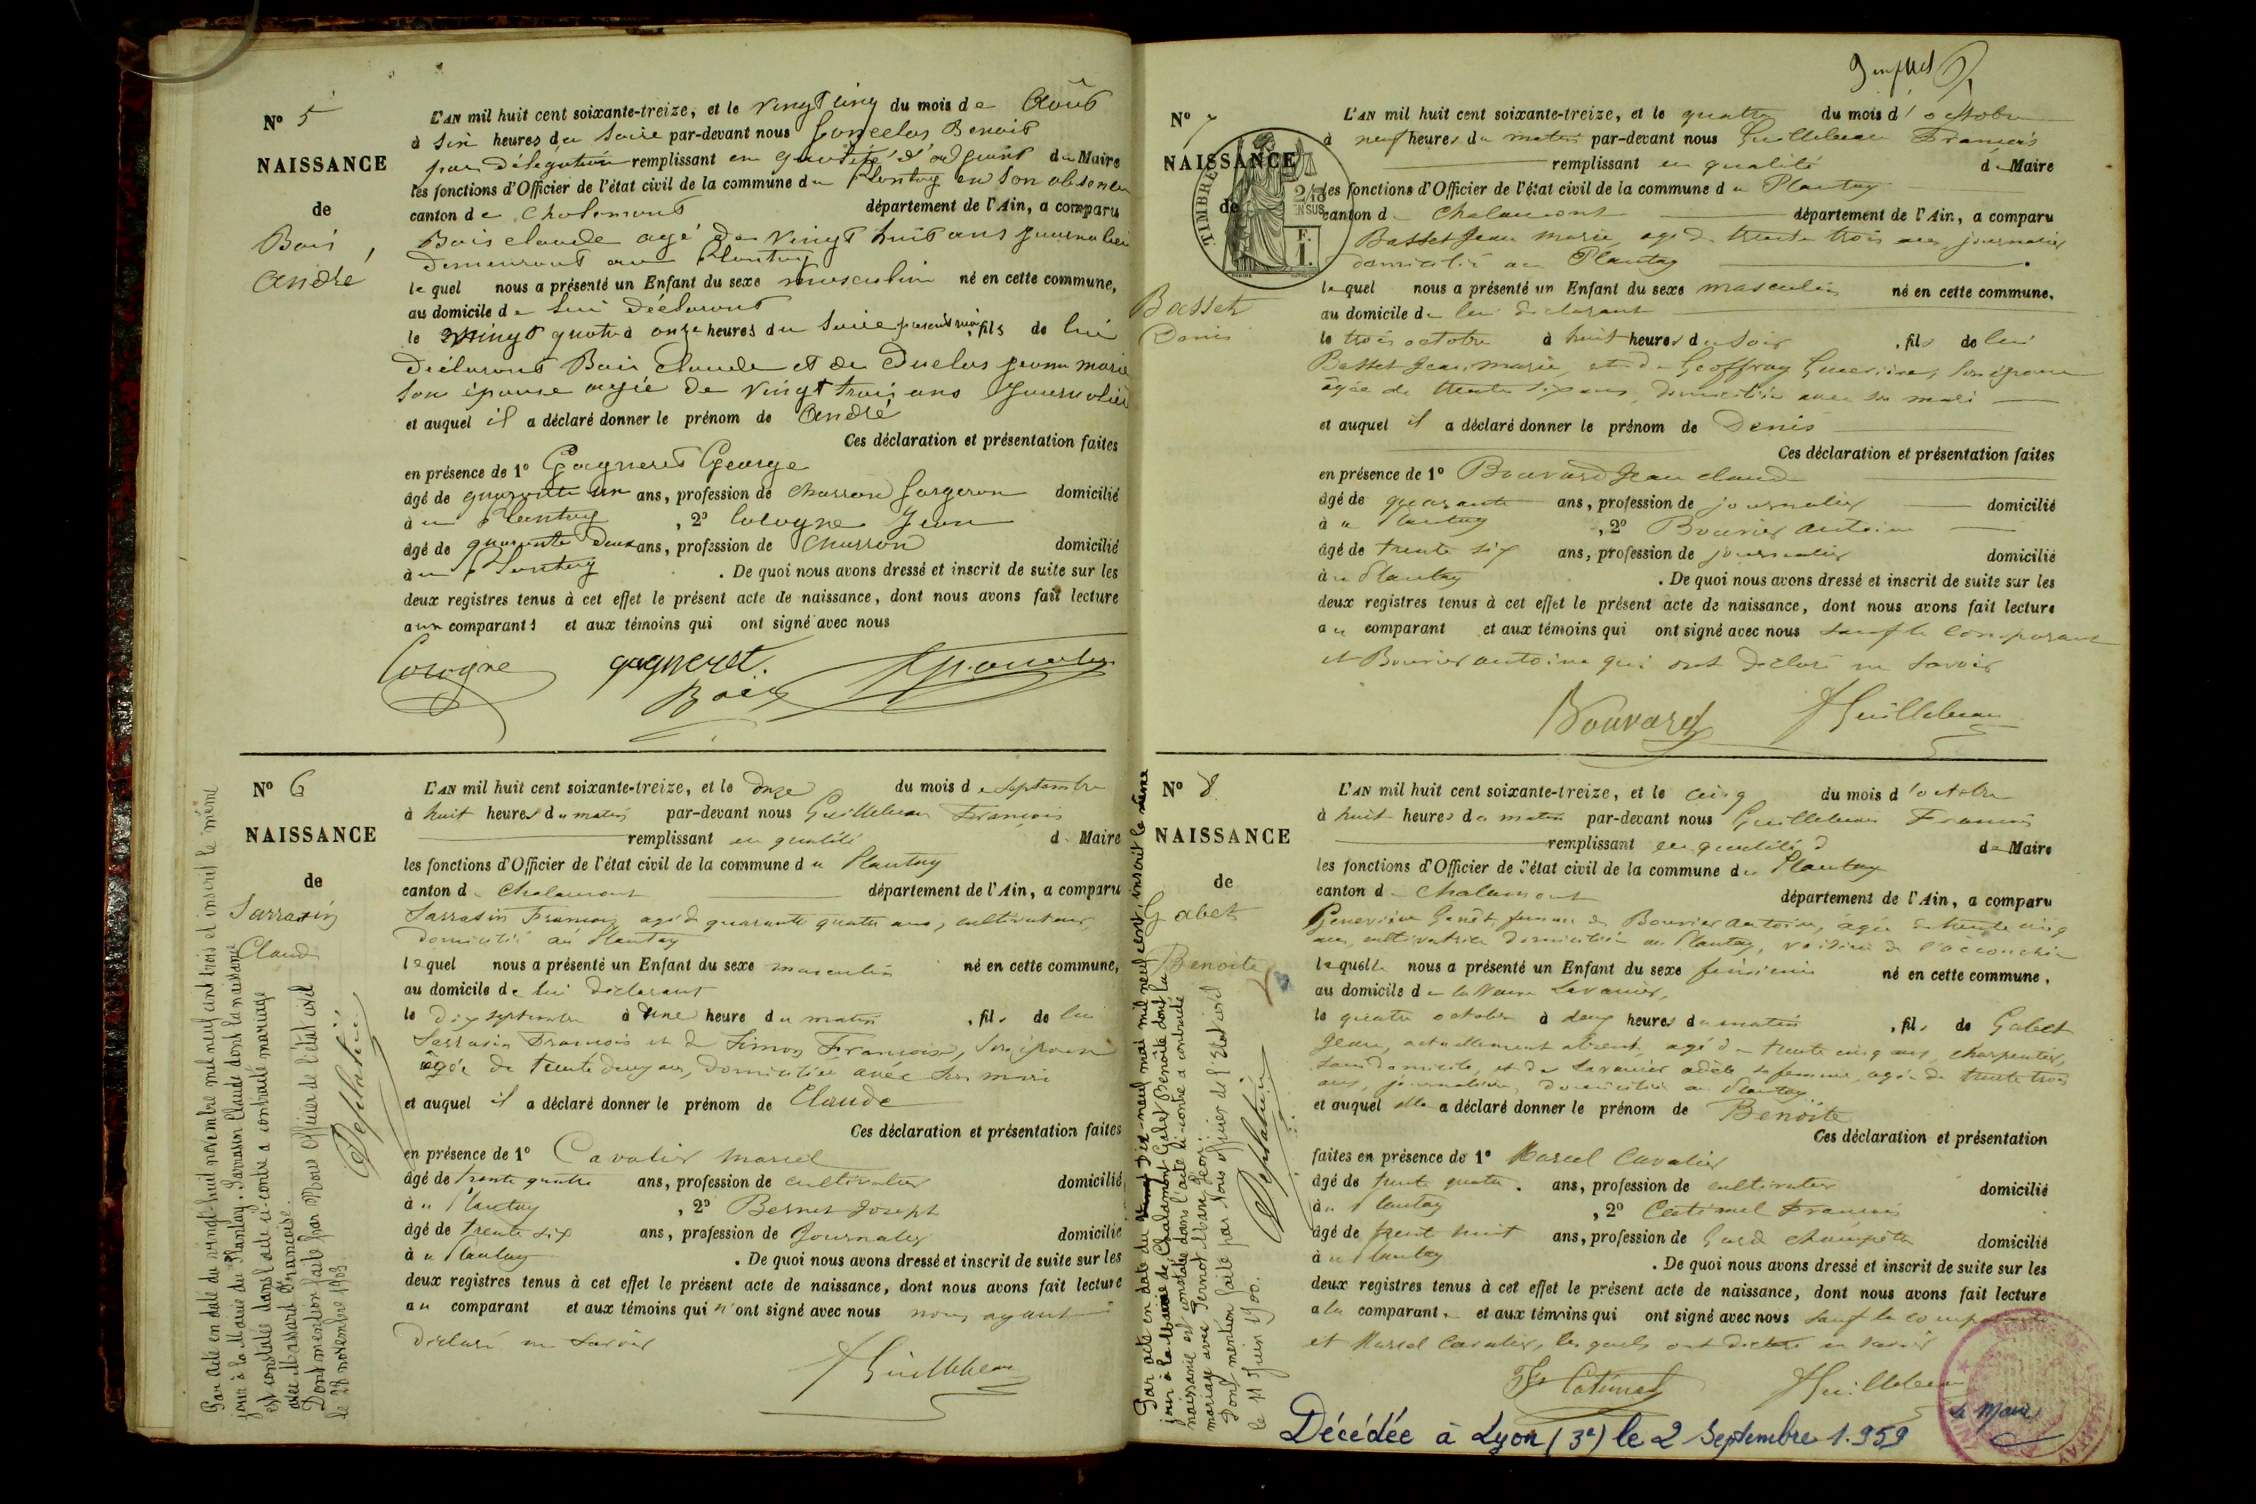 N° 5
NAISSANCE
de
Bois
André
L'AN mil huit cent soixante-treize, et le vingt cinq du mois de Août
à six heures du soire par-devant nous Benoit
par Délégation remplissant en qualité d'adjoint du Maire
les fonctions d'Officier de l'état civil de la commune du Plantay en son absence
canton de Chalamont département de l'Ain, a comparu
Bois claude agé de vingt huit ans journalier
demeurant au Plantay
lequel nous a présenté un Enfant du sexe masculin né en cette commune,
au domicile de lui Déclarant
le vingt quatre à onze heures du soire , fils de lui
Déclarant Bois Claude et de Duclos jeanne marie
son épouse agée de vingt trois ans journalière
et auquel il a déclaré donner le prénom de André
Ces déclaration et présentation faites
en présence de 1° Gagneret George
âgé de quarante un ans, profession de charron forgeron domicilié
au Plantay , 2° Cologne Jean
âgé de quarante deux ans, profession de charron domicilié
au Plantay . De quoi nous avons dressé et inscrit de suite sur les
deux registres tenus à cet effet le présent acte de naissance, dont nous avons fait lecture
aux comparants et aux témoins qui ont signé avec nous
Cologne gagneret.
Bois
N° 6
NAISSANCE
de
Sarrasin
Claude
L'AN mil huit cent soixante-treize, et le onze du mois de septembre
à huit heures du matin par-devant nous Guillebeau François
remplissant en qualité de Maire
les fonctions d'Officier de l'état civil de la commune du Plantay
canton de Chalamont département de l'Ain, a comparu
Sarrasin François agé de quarante quatre ans, cultivateur,
domicilié au Plantay
lequel nous a présenté un Enfant du sexe masculin né en cette commune,
au domicile de lui déclarant
le dix septembre à une heure du matin , fils de lui
Sarrasin François et de Simon Françoise, son épouse
âgée de trente deux ans, domiciliée avec son mari
et auquel il a déclaré donner le prénom de Claude
Ces déclaration et présentation faites
en présence de 1° Cavalier Marcel
âgé de trente quatre ans, profession de cultivateur domicilié
au Plantay , 2° Bernet Joseph
âgé de trente six ans, profession de journalier domicilié
au Plantay . De quoi nous avons dressé et inscrit de suite sur les
deux registres tenus à cet effet le présent acte de naissance, dont nous avons fait lecture
au comparant et aux témoins qui n'ont signé avec nous nous ayant
déclaré ne savoir
Guillebeau
Par acte en date du vingt-huit novembre mil neuf cent trois et inscrit le même
jour à la Mairie du Plantay. Sarrasin Claude dont la naissance
est constatée dans l'acte ci-contre a contracté mariage
avec Massard Françoise.
Dont mention faite par Nous Officier de l'état civil
le 28 novembre 1903.
N° 7
NAISSANCE
de
TIMBRE
2/10 EN SUS
F. 1.
Basset
Denis
L'AN mil huit cent soixante-treize, et le quatre du mois d'octobre
à neuf heures du matin par-devant nous Guillebeau François
remplissant en qualité de Maire
les fonctions d'Officier de l'état civil de la commune du Plantay
canton de Chalamont département de l'Ain, a comparu
Basset Jean Marie, agé de trente trois ans, journalier
domicilié au Plantay
lequel nous a présenté un Enfant du sexe masculin né en cette commune,
au domicile de lui déclarant
le trois octobre à huit heures du soir , fils de lui
Basset Jean Marie, et de Geoffray son épouse
âgée de trente six ans, domiciliée avec son mari
et auquel il a déclaré donner le prénom de Denis
Ces déclaration et présentation faites
en présence de 1° Bouvard Jean claude
âgé de quarante ans, profession de journalier domicilié
au Plantay , 2° Bouvier antoine
âgé de trente six ans, profession de journalier domicilié
au Plantay . De quoi nous avons dressé et inscrit de suite sur les
deux registres tenus à cet effet le présent acte de naissance, dont nous avons fait lecture
au comparant et aux témoins qui ont signé avec nous sauf le comparant
et Bouvier antoine qui ont déclaré ne savoir
Bouvard Guillebeau
N° 8
NAISSANCE
de
Gabet
Benoite
L'AN mil huit cent soixante-treize, et le cinq du mois d'octobre
à huit heures du matin par-devant nous Guillebeau François
remplissant en qualité de Maire
les fonctions d'Officier de l'état civil de la commune du Plantay
canton de Chalamont département de l'Ain, a comparu
Geneviève femme de Bouvier antoine, agée de trente cinq
ans, cultivatrice domiciliée au Plantay, voisine de l'accouchée
laquelle nous a présenté un Enfant du sexe féminin né en cette commune,
au domicile de la
le quatre octobre à deux heures du matin , fil de Gabet
Jean, actuellement absent, agé de trente cinq ans, charpentier,
sans domicile, et de Savanier adèle sa femme, agée de trente trois
ans, journalière, domiciliée au Plantay
et auquel elle a déclaré donner le prénom de Benoite
Ces déclaration et présentation
faites en présence de 1° Marcel Cavalier
âgé de trente quatre ans, profession de cultivateur domicilié
au Plantay , 2° Catimel François
âgé de trente huit ans, profession de Garde champêtre domicilié
au Plantay . De quoi nous avons dressé et inscrit de suite sur les
deux registres tenus à cet effet le présent acte de naissance, dont nous avons fait lecture
à la comparante et aux témoins qui ont signé avec nous sauf la comparante
et Marcel Cavalier, lesquels ont déclaré ne savoir
Catimel Guillebeau
Par acte en date du dix-neuf mai mil neuf cent, inscrit le même
jour à la Mairie de Chalamont Gabet Benoite dont la
naissance est constatée dans l'acte ci-contre a contracté
mariage avec Pernot
Dont mention faite par Nous officier de l'Etat civil
le 11 Juin 1900.
Décédée à Lyon (3e) le 2 Septembre 1.959
Le Maire